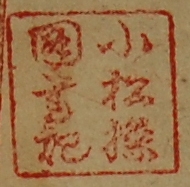 小松操
圖書記